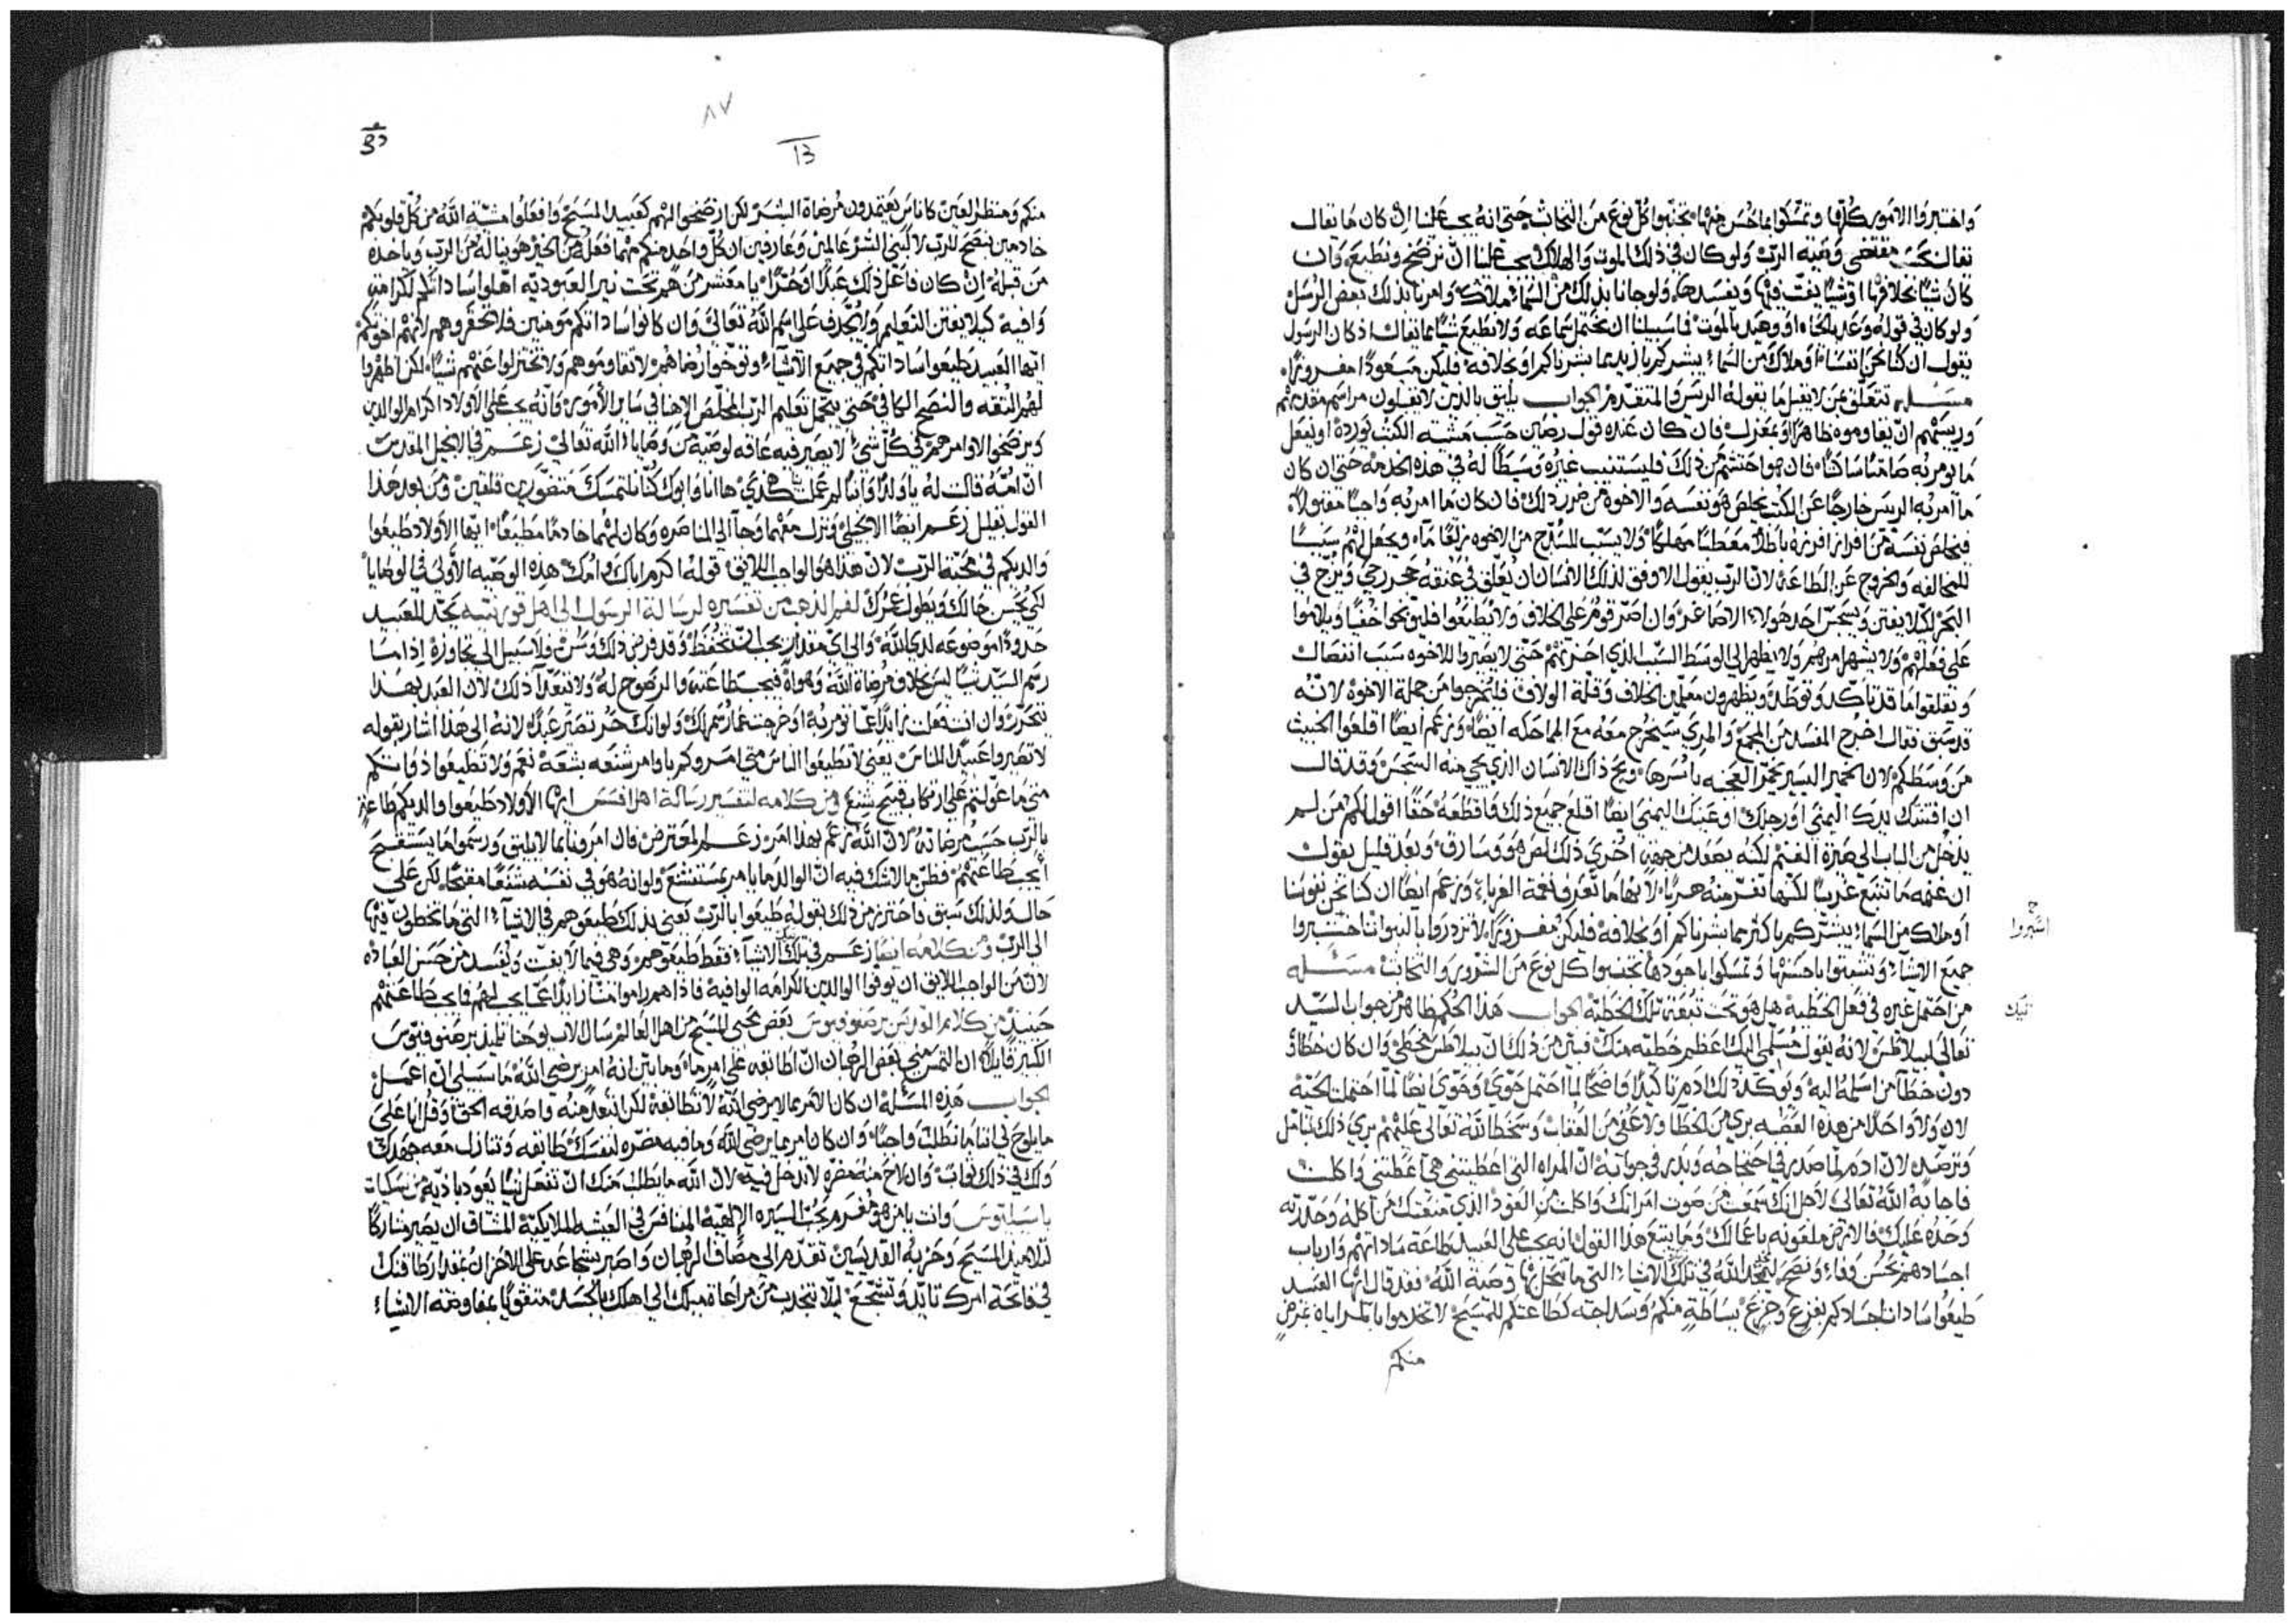 واختبروا الامور كلها وتمسكوا بما حسن منها تجنبوا كل نوع من الخبائث حتى انه يجب علينا ان كان ما يقال
يقال بحسب مقتضى وصية الرب ولو كان في ذلك الموت والهلاك يجب علينا ان نرضخ ونطيعه وان
كان شيا بخلافها او شيا يفت فيها ويفسدها ولو جانا بذلك من السماء ملاك وامرنا بذلك بعض الرسل
ولو كان في قوله وعد بالحياه او وعيد بالموت فما سبيلنا ان نحتمل سماعه ولا نطيع شيا مما يقال اذ كان الرسول
يقول ان كنا نحن انفسنا او ملاك من السماء يبشركم بازيد مما بشرناكم او بخلافه فليكن مبعودا مفروزا
مسئله تتعلق بمن لا يقبل ما يقوله الريس والمتقدم الجواب يليق بالذين لا يقبلون مراسم مقدمهم
وريسهم ان يقاوموه ظاهرا او بمعزل فان كان عنده قول رصين حسب مشية الكتب يورده او يفعل
ما يومر به صامتا ساكتا فان هو احتشم من ذلك فليستنب غيره وسيطا له في هذه الخدمه حتى ان كان
ما امر به الريس خارجا عن الكتب يخلص هو نفسه والاخوه من ضرر ذلك فان كان ما امر به واجبا مقبولا
فيخلص نفسه من افراز افرزه باطلا معطبا مهلكا ولا يسبب للسذج من الاخوه زلقا ما ويجعل لهم سببا
للمخالفه والخروج عن الطاعه لان الرب يقول الاوفق لذلك الانسان ان يعلق في عنقه حجر رحى ويزج في
البحر لكيلا يفتن ويسجس احد هولاء الاصاغر وان اصر قوم على الخلاف ولا يطيعوا فليوبخوا خفيا ويلاموا
على فعلهم ولا يشهر امرهم ولا يظهر الى الوسط السبب الذي احزنهم حتى لا يصيروا للاخوه سبب انفصال
وتعلقوا ما قد تاكد وتوطد ويظهرون معلمين الخلاف وقلة الولاف فليخرجوا من جملة الاخوه لانه
قد سبق فقال اخرج المفسد من المجمع والمري سيخرج معه مع المماحكه ايضا وزعم ايضا اقلعوا الخبيث
من وسطكم لان الخمير اليسير يخمر العجنه باسرها ويح ذاك الانسان الذي يجي منه السجس وقد قال
ان افتنتك يدك اليمنى او رجلك او عينك اليمنى ايضا اقلع جميع ذلك واقطعه حقا اقول لكم من لم
يدخل من الباب الى صيرة الغنم لكنه يصعد من جهة اخرى ذلك لص هو وسارق وبعد قليل يقول
ان غنمه ما تتبع غريبا لكنها تفر منه هربا لانها ما تعرف نغمة الغرباء وزعم ايضا ان كنا نحن نفوسنا
او ملاك من السماء يبشركم باكثر مما بشرناكم او بخلافه فليكن مفروزا لا تزدروا بالنبوات اختبروا
جميع الاشياء وتشبثوا باحسنها وتمسكوا باجودها تجنبوا كل نوع من الشرور والخبائث مسئله
من احتمل غيره في فعل الخطيه هل هو تحت تبعة تلك الخطيه الجواب هذا الحكم ظاهر من جواب السيد
تعالى لبيلاطس لانه يقول مسلمي اليك عظيم خطيته منك فبين من ذلك ان بيلاطس مخطي وان كان خطاؤه
دون خطا من اسلمه اليه ويوكد ذلك ادم تاكيدا واضحا لما احتمل حوى وحوى ايضا لما احتملت الحية
لان ولا واحد من هذه القضيه بري من الخطا ولا عفي من العقاب وسخط الله تعالى عليهم بري ذلك بتامل
وترصد لان ادم لما صدر في احتجاجه وبدر في جوابه ان المراه التي اعطيتني هي اعطتني واكلت
فاجابه الله تعالى لاجل انك سمعت من صوت امراتك واكلت من العود الذي منعتك من اكله وحذرته
وحده عليك فالارض ملعونه باعمالك ومما يتبع هذا القول انه يجب على العبيد طاعة ساداتهم وارباب
اجسادهم بحسن وفاء ونصح لتمجيد الله في تلك الاشياء التي ما تنحل بها وصية الله فقد قال ايها العبيد
طيعوا سادات اجسادكم بفزع وجزع ببساطة منكم وسداجته كطاعتكم للمسيح لا تخدموا بالمراياه بغرض
منكم
اختبروا
تيك
٨٧
13
منكم ومنظر العين كاناس يعتمدون مرضاة البشر لكن ارضخوا لهم كعبيد المسيح وافعلوا مشية الله من كل قلوبكم
خادمين بنصح للرب لا لبني البشر عالمين وعارفين ان كل واحد منكم مهما فعله من الخير هو يناله من الرب وياخذه
من قبله ان كان فاعل ذلك عبدا او حرا يا معشر من هم تحت نير العبوديه اهلوا ساداتكم لكرامة
وافيه كيلا يفتن التعليم ولا يجدف على اسم الله تعالى وان كانوا ساداتكم مومنين فلا تحقروهم لانهم اخوتكم
ايها العبيد طيعوا ساداتكم في جميع الاشياء وتوخوا رضاهم لا تقاوموهم ولا تختزلوا عنهم شيا لكن اظهروا
لهم الثقه والنصح الكافي حتى يتجمل تعليم الرب المخلص الاهنا في ساير الأمور وانه يجب على الاولاد اكرام الوالدين
ويرضخوا لاوامرهم في كل شيء لا يصير فيه عاقه لوصية من وصايا الله تعالى زعم في الانجيل المقدس
ان امه قالت له يا ولد اتانا لم عملت بنا هكذى ها انا وابوك كنا نلتمسك متضورين قلقين ومن بعد هذا
القول بقليل زعم ايضا الانجيلي ونزل معهما وجاا الى الناصره وكان لهما خادما مطيعا ايها الاولاد طيعوا
والديكم في محبة الرب لان هذا هو الواجب اللايق قوله اكرم اباك وامك هذه الوصيه الأولى في الوصايا
لكي يحسن حالك ويطول عمرك لفم الذهب من تفسيره لرسالة الرسول الى اهل قورنتيه يحد للعبيد
حدودا موضوعه لدى الله والى اي مقدار يجب ان تحفظ وقد فرض ذلك وسن فلا سبيل الى تجاوزه اذا ما
رسم السيد شيا ليس بخلاف مرضاة الله وهواه فيجب طاعته والرضوخ له ولا تتعدا ذلك لان العبد بهذا
يتحرر وان انت فعلت زايدا عما تومر به او خرجت عما رسم لك ولو انك حر تصير عبدا لانه الى هذا اشار بقوله
لا تصيروا عبيدا للناس يعني لا تطيعوا الناس متى امروكم باوامر شنعه بشعه نعم ولا تطيعوا ذواتكم
متى ما عولتم على ارتكاب قبيح شنيع ومن كلامه لتفسير رسالة اهل افسس ايها الأولاد طيعوا والديكم طاعة
بالرب حسب مرضاته لان الله زعم بهذا امر زعم المعترض فان امرونا بما لا يليق ورسموا ما يستقبح
أيجب طاعتهم فظن مما لا شك فيه ان الوالد ما يامر بمستشنع ولو انه هو في نفسه شنعا مقبحا لكن على
حال ولذلك سبق فاحترز من ذلك بقوله طيعوا بالرب يعني بذلك طيعوهم في الاشياء التي ما تخطون فيها
الى الرب ومن كلامه ايضا زعم في تلك الاشياء فقط طيعوهم وهي فيما لا يفت ويفسد من حسن العباده
لان من الواجب اللايق ان يوفوا الوالدين الكرامه الوافيه فاذا هم راموا منا زايدا عما يجب لهم فما يجب طاعتهم
حينيذ من كلام القديس برصنوفيوس بعض محبي المسيح من اهل العالم سال الاب يوحنا تلميذ برصنوفيوس
الكبير قايلا ان التمس مني بعض الرهبان ان اطابقه على امر ما وما بين انه امر يرضي الله ما سبيلي ان اعمل
الجواب هذه المسئله ان كان الأمر مما لا يرضي الله لا تطابقه لكن ابتعد منه واصدقه الحق وقل انا على
ما يلوح لي انا ما تطلب واجبا وان كان امر مما يرضي الله وما فيه مضره لنفسك طابقه وتنازل معه جهدك
ولك في ذلك ثواب وان لاح منه مضره لا تدخل فيه لان الله ما يطلب منك ان تفعل شيا يعود باذيه من نسكيات
باسيليوس وانت يا من هو مغرم بحب السيره الإلهيه المنافس في العيشه الملايكية المشتاق ان يصير مشاركا
لتلاميذ المسيح وحزبه القديسين تقدم الى مصاف الرهبان واصبر بشجاعه على الاحزان بمقدار طاقتك
في فاتحة امرك تايد وتشجع ليلا تنجذب من مراعاة ميلك الى اهلك بالجسد متقويا بمفاوضه الاشياء